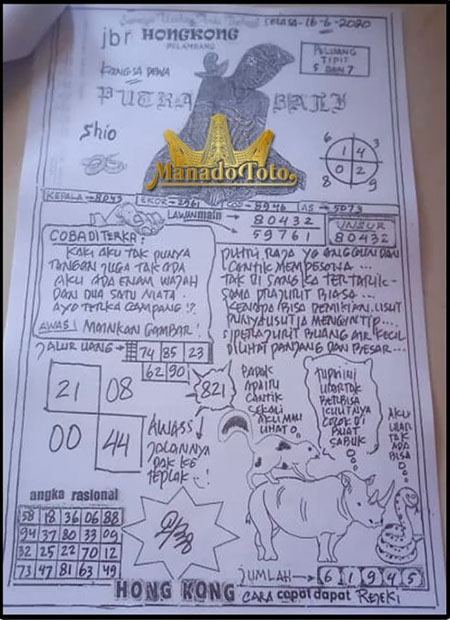 SELASA - 16-6-2020
jbr HONGKONG
PELAMBANG
PELUANG
TIPIT
5 DAN 7
PUTRA BALI
Shio
6 3
1 4
0 2
8 9
ManadoToto
KEPALA → 8043
EKOR → 2961
COB → 8946
AS → 5073
LAWAN main
80432
59761
UNSUR
80432
COBA DITERKA:
KAKI AKU TAK PUNYA
TANGAN JUGA TAK ADA
AKU ADA ENAM WAJAH
DAN DUA SATU NIATA
AYO TERKA GAMPANG !?
AWAS! MAINKAN GAMBAR!
PUTRI RAJA YG ANGGUN DAN
CANTIK MEMPESONA...
TAK DI SANGKA TERTARIK
SAMA PRAJURIT BIASA...
KENAPA BISA DEMIKIAN, USUT
PUNYA USUT IA MENGINTIP...
SI PERAJURIT BUANG AIR KECIL
DILIHAT PANJANG DAN BESAR...
JALUR UANG →
74 85 23
62 90
21 08
00 44
821
AWASS!
JALANNYA
PAK KE
JEPLAK..!
BADAK
APA ITU
CANTIK
SEKALI
AKU MAU
LIHAT
BERBISA
KULITNYA
COCOK DI
BUAT
SABUK
AKU
ULAR
TAK
ADA
BISA
angka rasional
58 18 36 06 88
94 37 80 33 09
32 25 22 70 12
73 47 81 63 49
JUMLAH → 6 1 9 4 5
HONG KONG CARA cepat dapat REJEKI